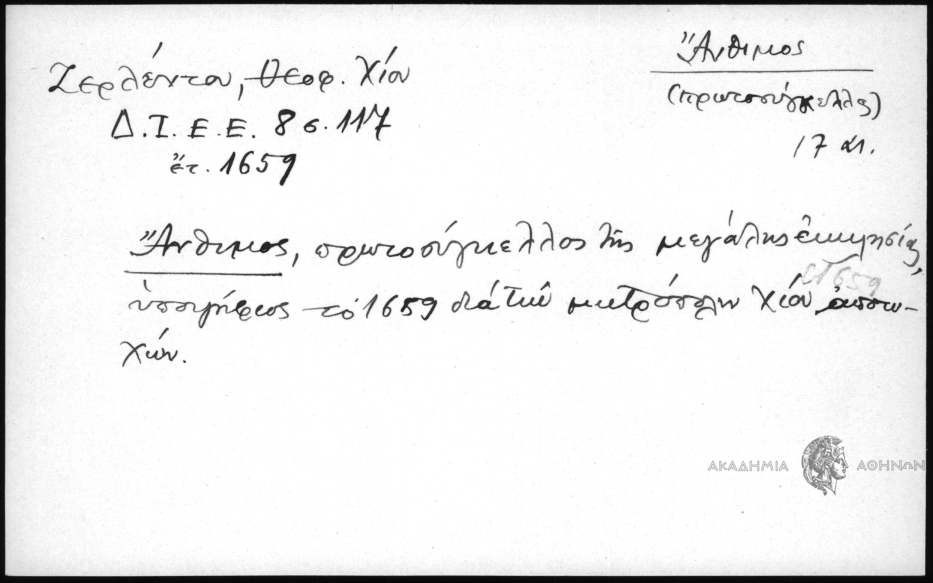 Ζερλέντου, Θεοφ. Χίου
Δ.Ι.Ε.Ε. 8 σ. 117
ἔτ. 1659
Ἄνθιμος
(πρωτοσύγκελλος)
17 αἰ.
Ἄνθιμος, πρωτοσύγκελλος τῆς μεγάλης ἐκκλησίας,
1659
ὑποψήφιος τὸ 1659 διὰ τὴν μητρόπολιν Χίου ἀποτυ-
χών.
ΑΚΑΔΗΜΙΑ ΑΘΗΝΩΝ